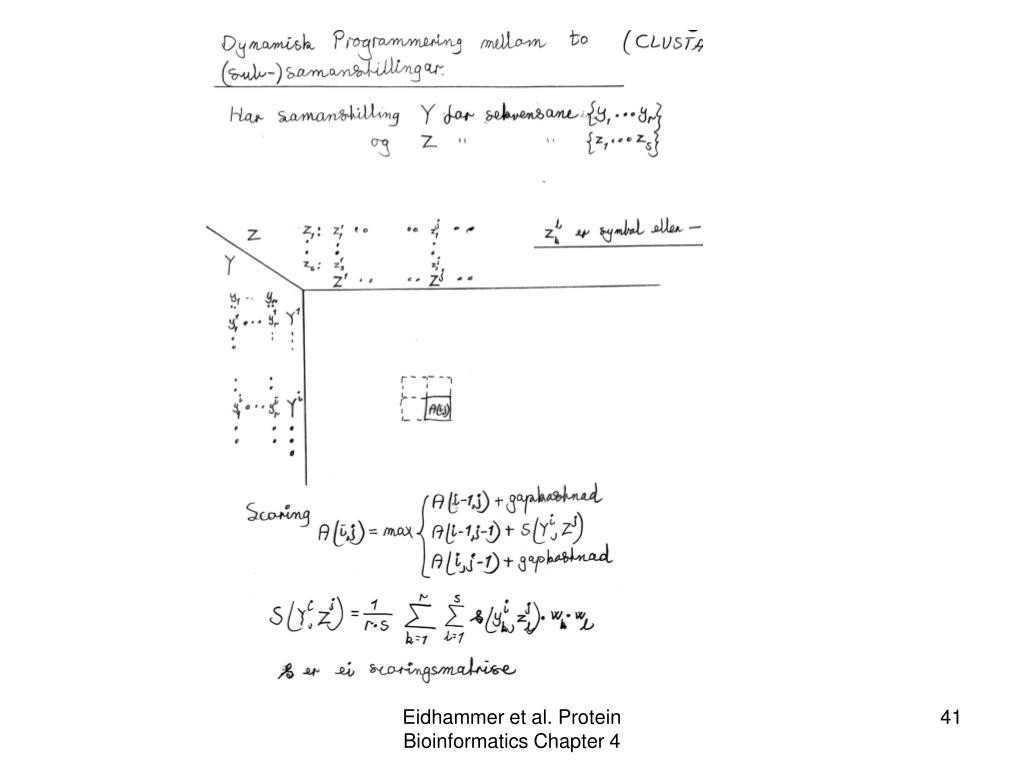 Dynamisk Programmering mellom to (CLUSTA
(sub-)samanstillingar.
Har samanstilling Y for sekvensane {y₁...yᵣ}
og Z " " {z₁...zₛ}
Z z₁: z₁¹ .. .. z₁ʲ .. zₖˡ er symbol eller −
: : :
Y zₛ: zₛ¹ zₛʲ
Z¹ .. .. Zʲ ..
y₁ .. yᵣ
y₁¹ ... yᵣ¹ Y¹
A(i,j)
y₁ⁱ ... yᵣⁱ Yⁱ
A(i-1,j) + gapkostnad
Scoring A(i,j) = max { A(i-1,j-1) + S(Yⁱ,Zʲ)
A(i,j-1) + gapkostnad
S(Yⁱ,Zʲ) = 1/r·s Σₖ₌₁ʳ Σₗ₌₁ˢ s(yₖⁱ,zₗʲ)·wₖ·wₗ
s er ei scoringsmatrise
Eidhammer et al. Protein 41
Bioinformatics Chapter 4